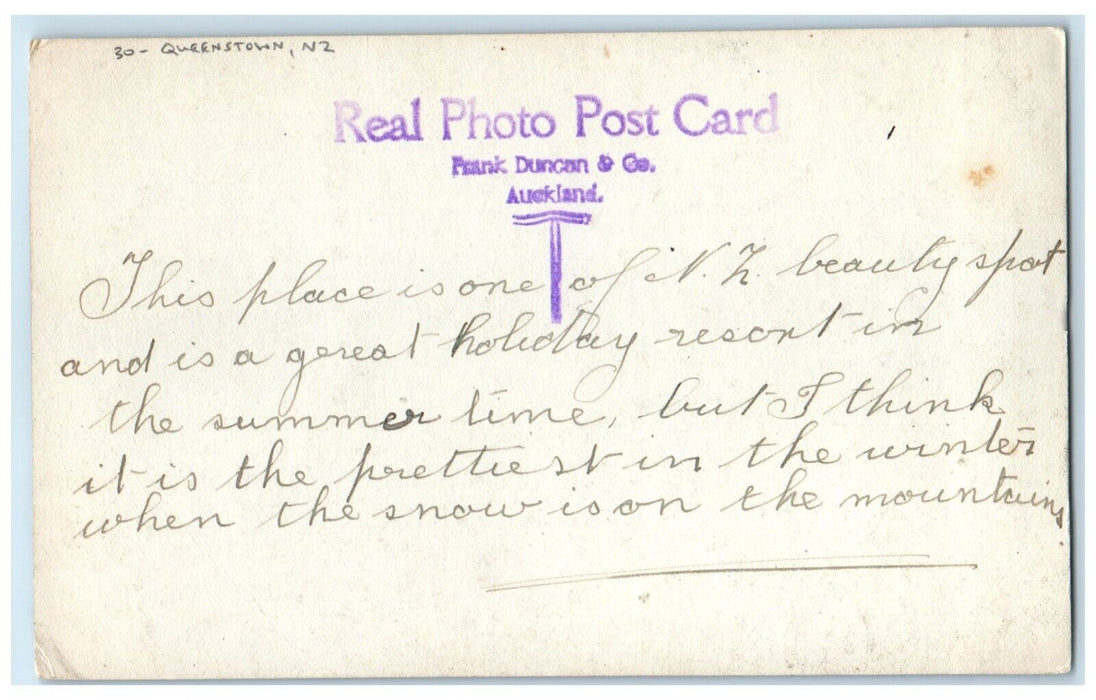 30- QUEENSTOWN, NZ
Real Photo Post Card
Frank Duncan & Co.
Auckland.
This place is one of N. Z. beauty spot
and is a great holiday resort in
the summer time, but I think
it is the prettiest in the winter
when the snow is on the mountains